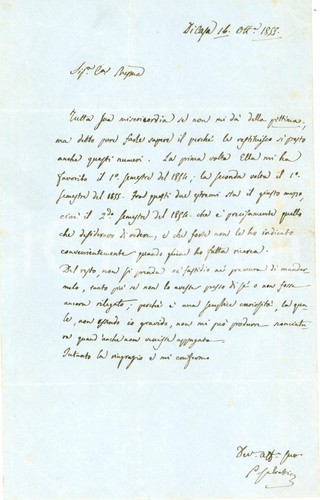 Di Casa 16. Ott.e 1855.
Sig.r Cav.
Tutta sua misericordia se non mi dà della pittima,
ma debbo pure farle sapere il perchè le restituisco sì presto
anche questi numeri. La prima volta Ella mi ha
favorito il 1.o semestre del 1854; la seconda volta il 1.o
semestre del 1855. Fra questi due estremi sta il giusto mezzo,
cioè il 2.do semestre del 1854. che è precisamente quello
che desiderava di vedere, e che forse non le ho indicato
convenientemente quando gliene ho fatta ricerca.
Del resto, non si prenda nè fastidio nè premura di mandar-
melo, tanto più se non lo avesse presso di sè o non fosse
ancora rilegato; perchè è una semplice curiosità, la qua-
le, non essendo io gravido, non mi può produrre sconcia-
tura quand'anche non venisse appagata.
Intanto la ringrazio e mi confermo
Dev. aff.